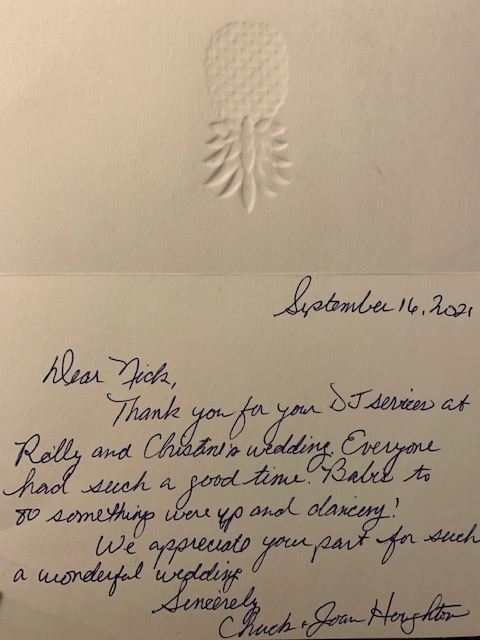 September 16, 2021
Dear Nick,
Thank you for your DJ services at
Reilly and Christine's wedding. Everyone
had such a good time. Babies to
80 somethings were up and dancing!
We appreciate your part for such
a wonderful wedding
Sincerely
Chuck + Joan Houghton